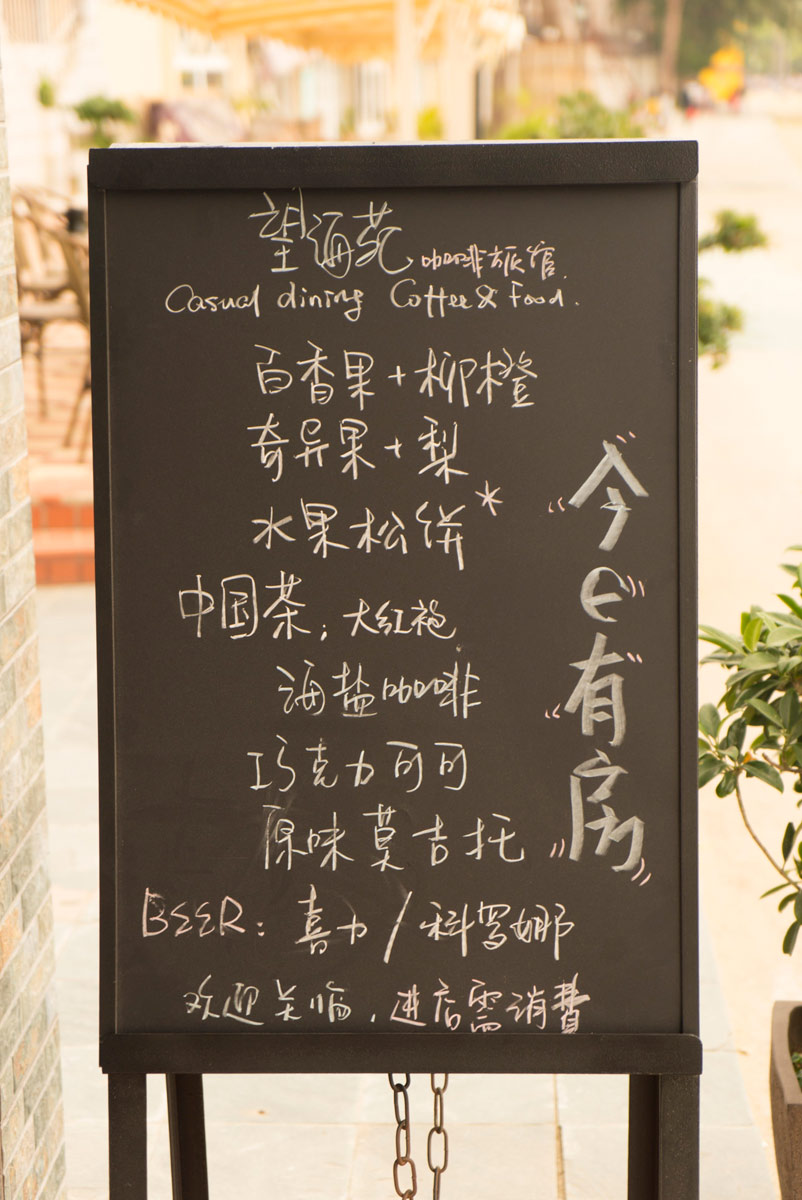 望海苑 咖啡旅馆
Casual dining Coffee & Food.
百香果+柳橙
奇异果+梨
水果松饼*
中国茶:大红袍
海盐咖啡
巧克力可可
原味莫吉托
BEER:喜力/科罗娜
欢迎关临,进店需消费
今日有房